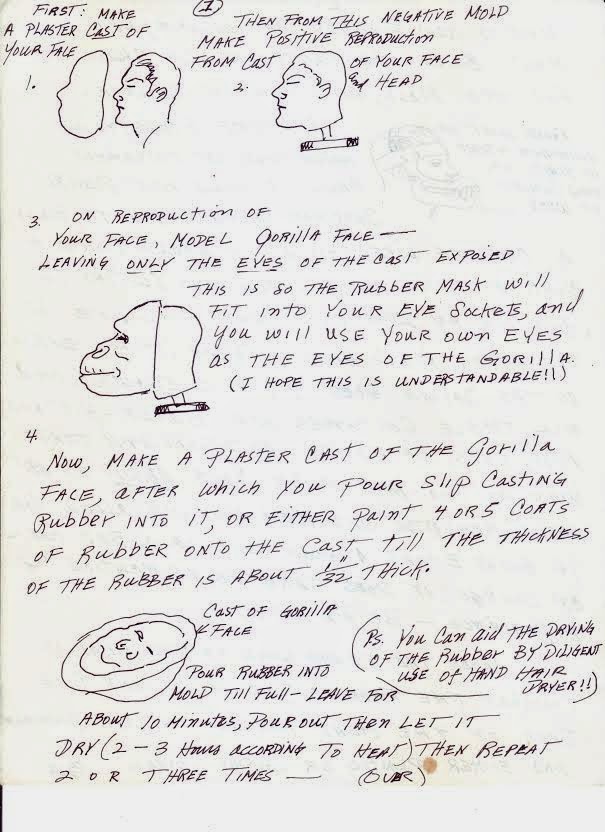 (1)
FIRST: MAKE
A PLASTER CAST OF
YOUR FACE
1.
THEN FROM THIS NEGATIVE MOLD
MAKE POSITIVE REPRODUCTION
FROM CAST OF YOUR FACE
2. and HEAD
3. ON REPRODUCTION OF
YOUR FACE, MODEL GORILLA FACE —
LEAVING ONLY THE EYES OF THE CAST EXPOSED
THIS IS SO THE RUBBER MASK WILL
FIT INTO YOUR EYE SOCKETS, and
YOU WILL USE YOUR OWN EYES
AS THE EYES OF THE GORILLA.
(I HOPE THIS IS UNDERSTANDABLE!!)
4.
NOW, MAKE A PLASTER CAST OF THE GORILLA
FACE, AFTER WHICH YOU POUR SLIP CASTING
RUBBER INTO IT, OR EITHER PAINT 4 OR 5 COATS
OF RUBBER ONTO THE CAST TILL THE THICKNESS
OF THE RUBBER IS ABOUT 1/32" THICK.
CAST OF GORILLA
FACE
(Ps. YOU CAN AID THE DRYING
OF THE RUBBER BY DILIGENT
USE OF HAND HAIR
DRYER!!)
POUR RUBBER INTO
MOLD TILL FULL - LEAVE FOR
ABOUT 10 MINUTES, POUR OUT THEN LET IT
DRY (2 - 3 HOURS ACCORDING TO HEAT) THEN REPEAT
2 OR THREE TIMES — (OVER)